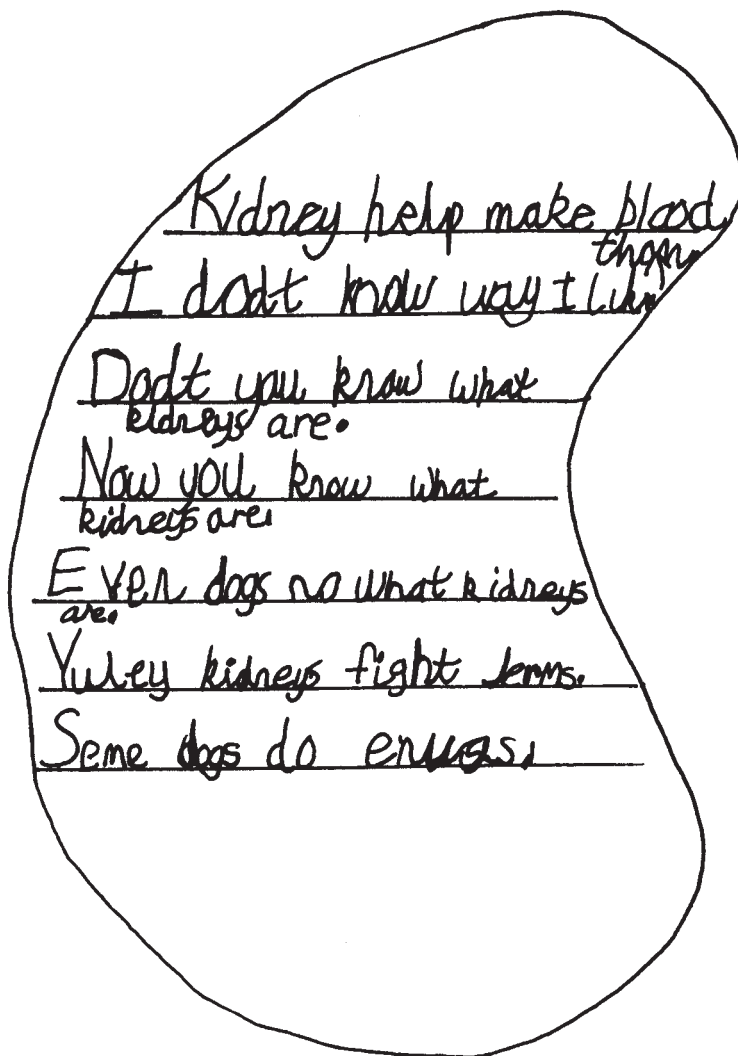 Kidney help make blood.
I dodt know way I like them.
Dodt you know what
kidneys are.
Now you know what
kidneys are.
Even dogs no what kidneys
are.
kidneys fight Jerms.
Seme dogs do